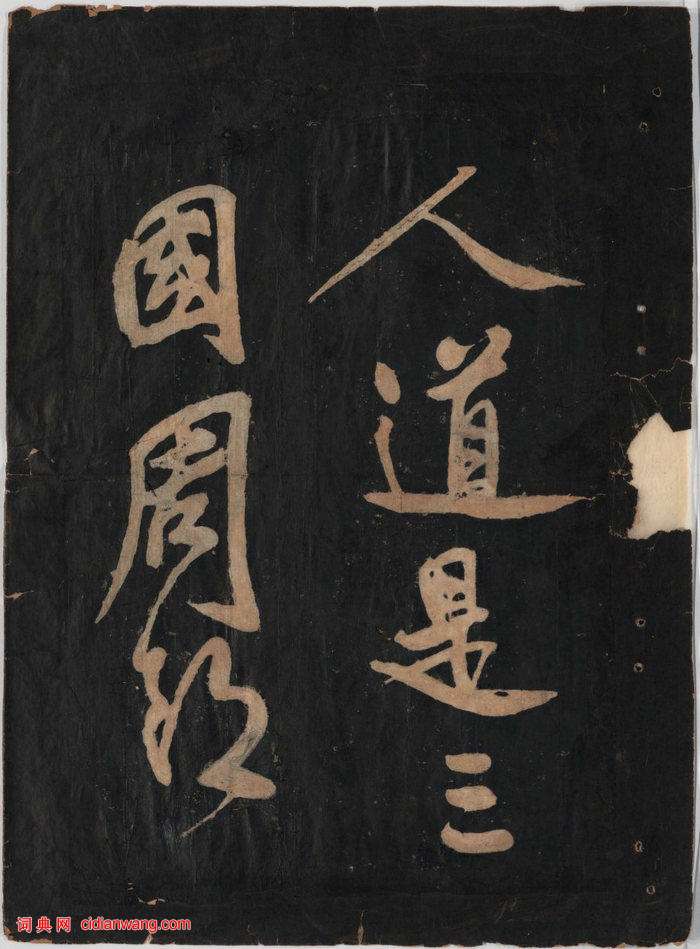 人道是三
國周郎
词典网 cidianwang.com